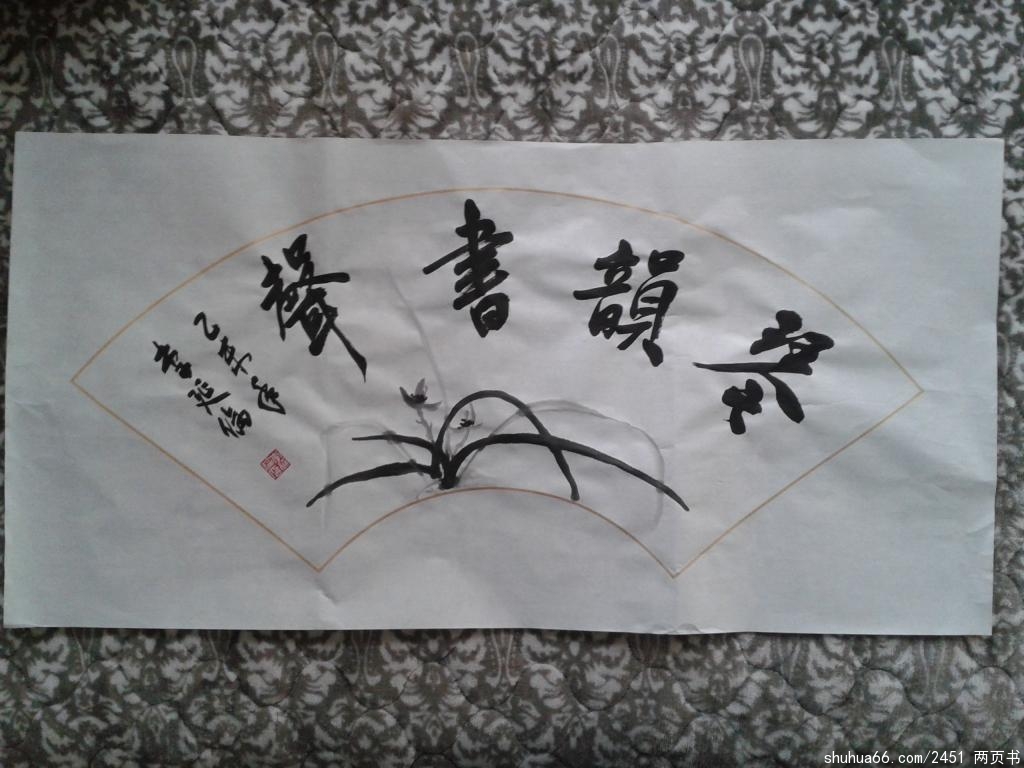 茶韻書聲
乙未年
李延
shuhua66.com/2451 两页书